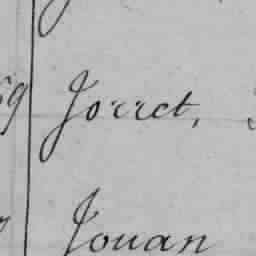 59 Jorret,
Jouan